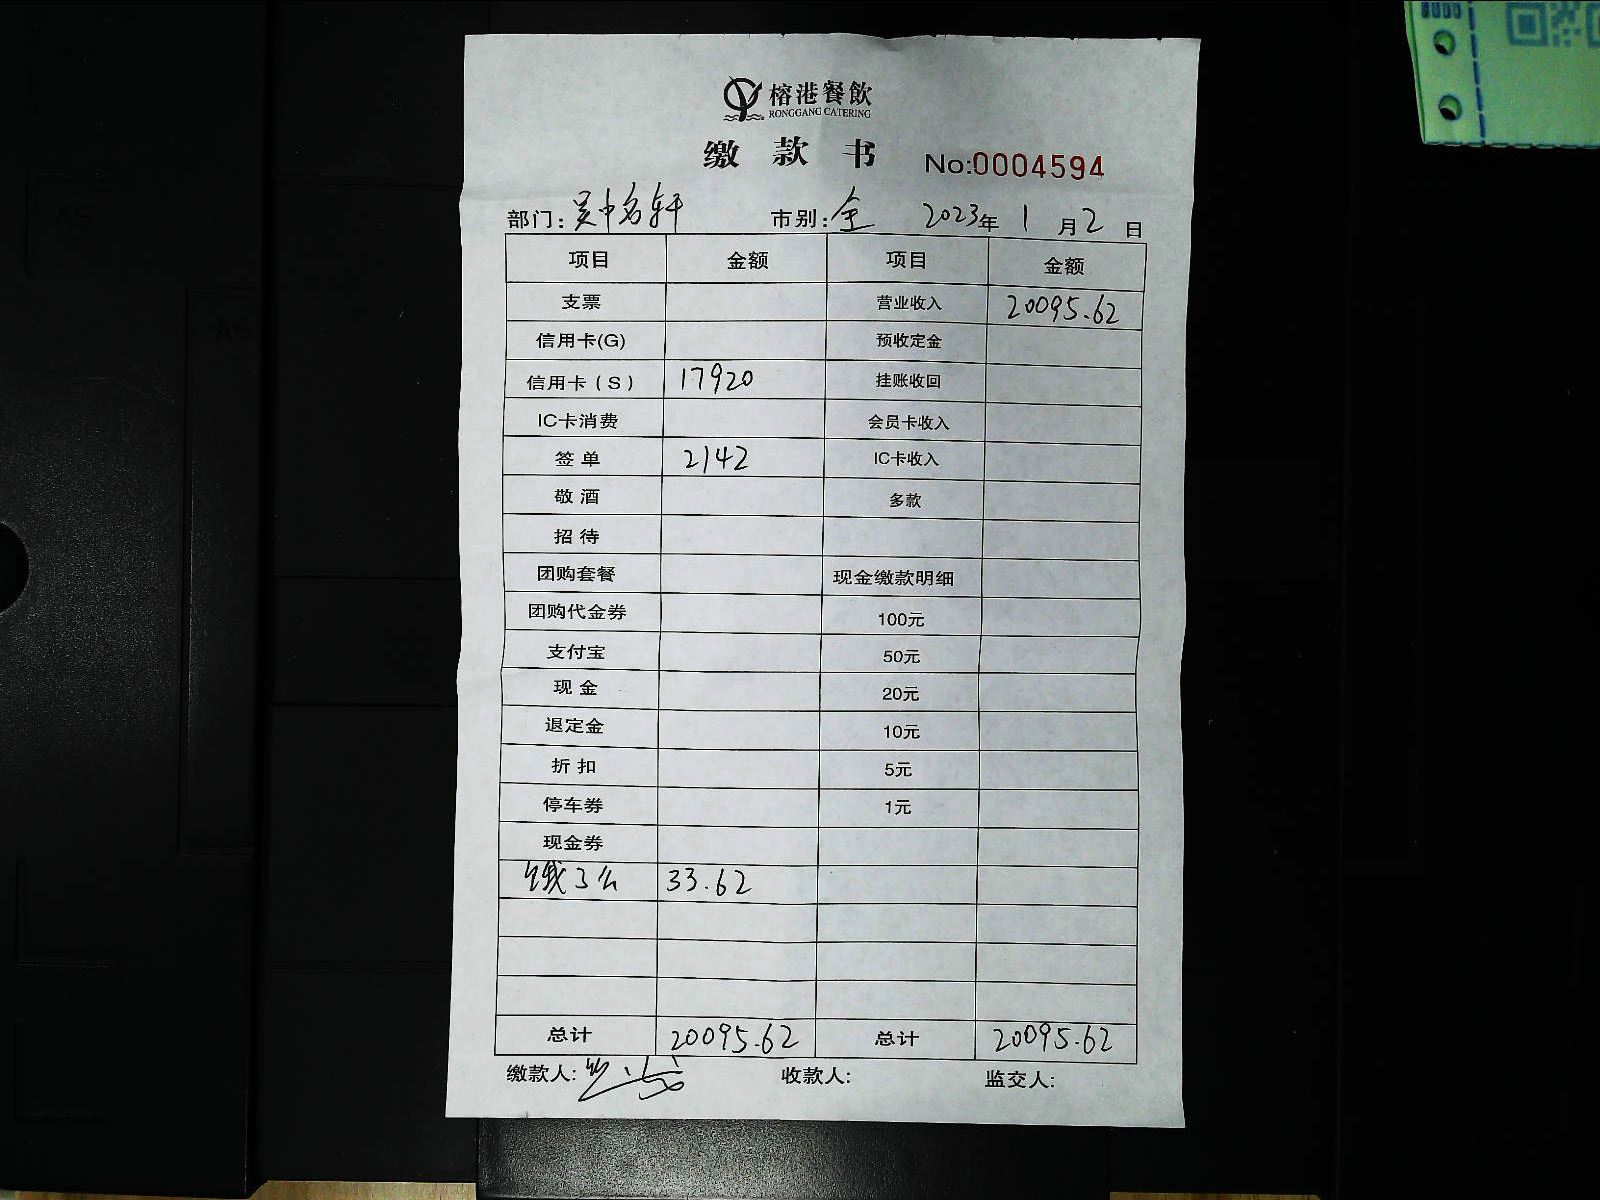 榕港餐飲
RONGGANG CATERING
缴 款 书 No:0004594
部门: 吴中名轩 市别: 全 2023年 1 月 2 日
项目 金额 项目 金额
支票 营业收入 20095.62
信用卡(G) 预收定金
信用卡(S) 17920 挂账收回
IC卡消费 会员卡收入
签 单 2142 IC卡收入
敬 酒 多款
招 待
团购套餐 现金缴款明细
团购代金券 100元
支付宝 50元
现 金 20元
退定金 10元
折 扣 5元
停车券 1元
现金券
饿了么 33.62
总计 20095.62 总计 20095.62
缴款人: 收款人: 监交人: